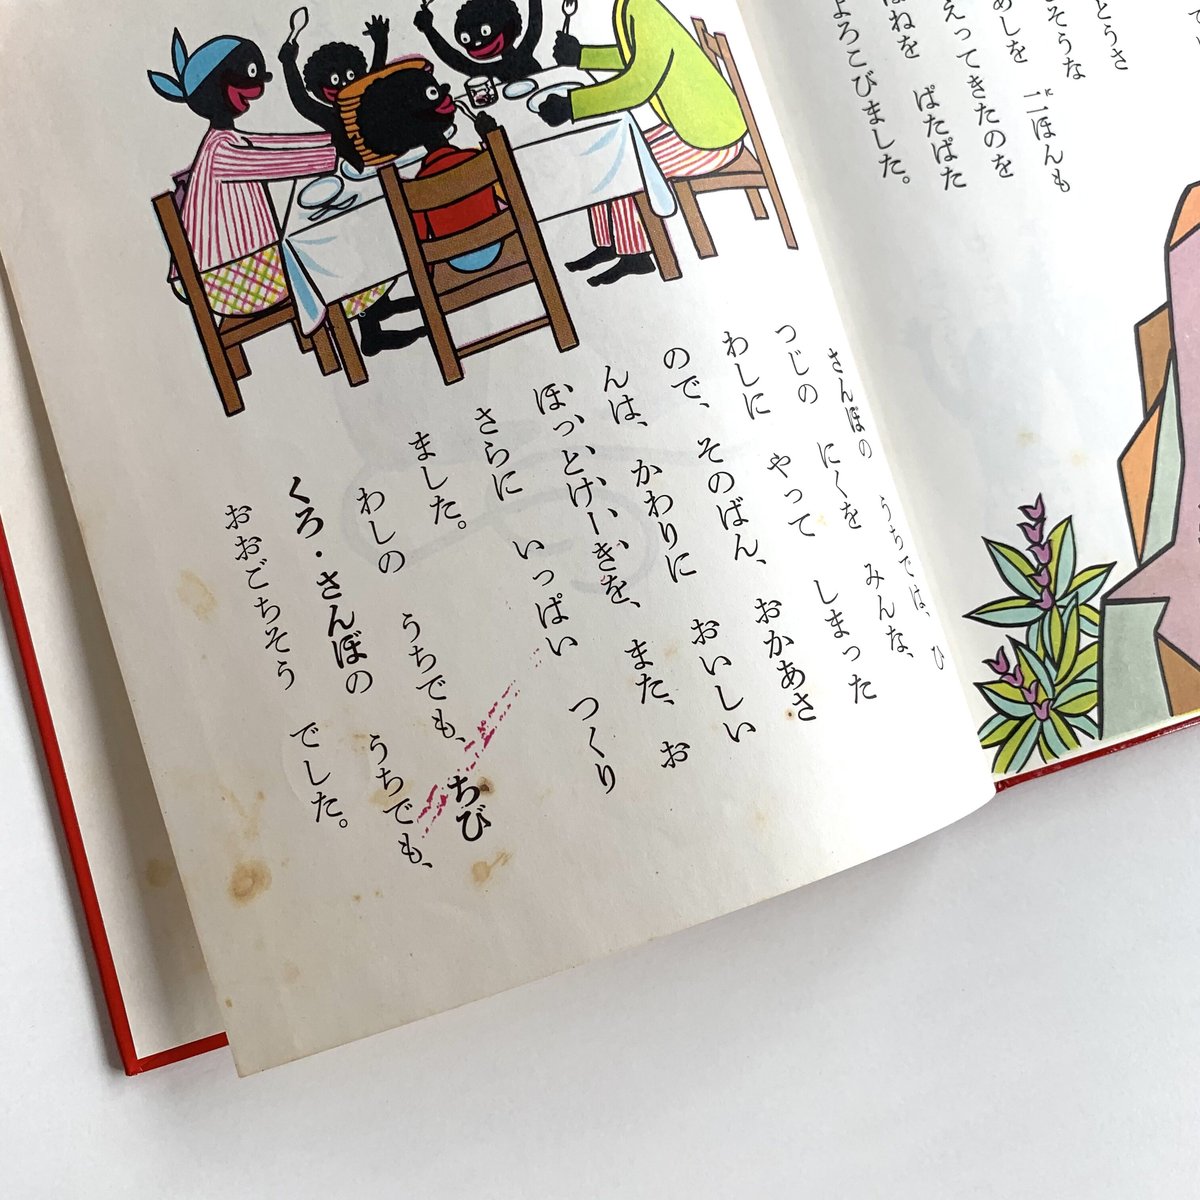 とうさ
そうな
あしを 二ほんも
えってきたのを
はねを ぱたぱた
よろこびました。
さんぼの うちでは、ひ
つじの にくを みんな、
わしに やって しまった
ので、そのばん、おかあさ
んは、かわりに おいしい
ほっとけーきを、また、お
さらに いっぱい つくり
ました。
わしの うちでも、ちび
くろ・さんぼの うちでも、
おおごちそう でした。